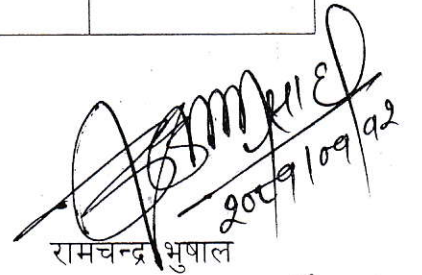 २०८१।०१।१२
रामचन्द्र भुषाल